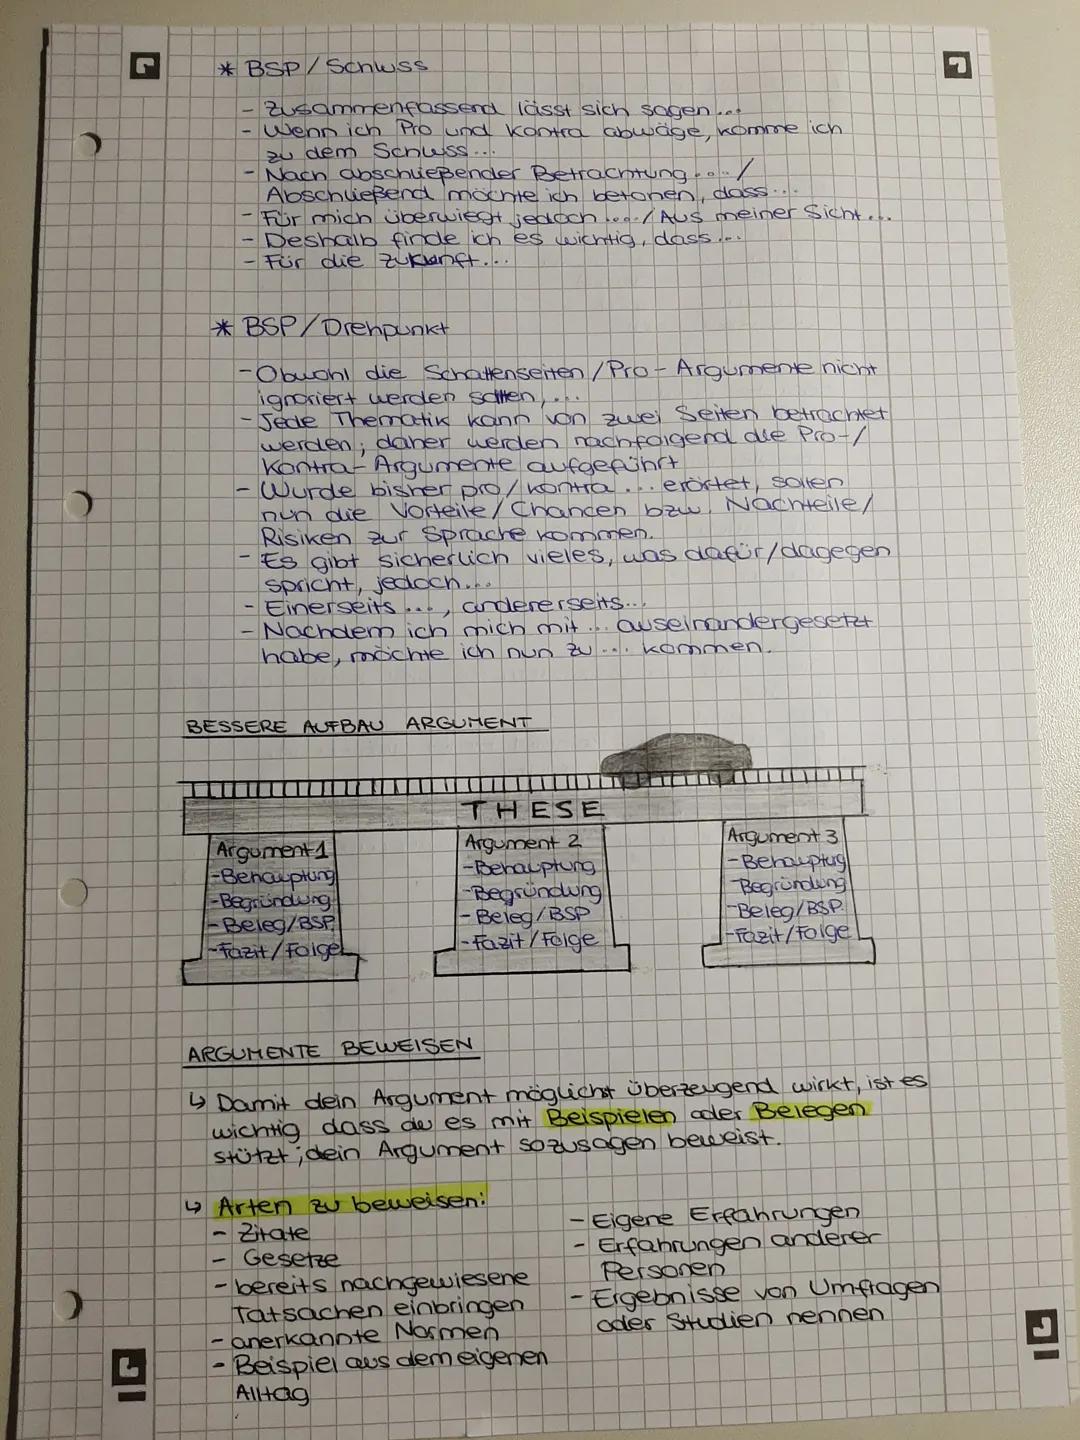 * BSP/Schluss
- Zusammenfassend lässt sich sagen...
- Wenn ich Pro und Kontra abwäge, komme ich
zu dem Schluss...
- Nach abschließender Betrachtung .../
Abschließend möchte ich betonen, dass...
- Für mich überwiegt jedoch .../Aus meiner Sicht...
- Deshalb finde ich es wichtig, dass...
- Für die Zukunft...
* BSP/Drehpunkt
- Obwohl die Schattenseiten/Pro-Argumente nicht
ignoriert werden sollten,...
- Jede Thematik kann von zwei Seiten betrachtet
werden; daher werden nachfolgend die Pro-/
Kontra-Argumente aufgeführt
- Wurde bisher pro/kontra ... erörtet, sollen
nun die Vorteile/Chancen bzw. Nachteile/
Risiken zur Sprache kommen.
- Es gibt sicherlich vieles, was dafür/dagegen
spricht, jedoch...
- Einerseits ..., andererseits...
- Nachdem ich mich mit ... auseinandergesetzt
habe, möchte ich nun zu ... kommen.
BESSERE AUFBAU ARGUMENT
THESE
Argument 1
- Behauptung
- Begründung
- Beleg/BSP
- Fazit/Folge
Argument 2
- Behauptung
- Begründung
- Beleg/BSP
- Fazit/Folge
Argument 3
- Behauptug
- Begründung
- Beleg/BSP.
- Fazit/Folge
ARGUMENTE BEWEISEN
↳ Damit dein Argument möglichst überzeugend wirkt, ist es
wichtig dass du es mit Beispielen oder Belegen
stützt; dein Argument sozusagen beweist.
↳ Arten zu beweisen:
- Zitate
- Gesetze
- bereits nachgewiesene
Tatsachen einbringen
- anerkannte Normen
- Beispiel aus dem eigenen
Alltag
- Eigene Erfahrungen
- Erfahrungen anderer
Personen
- Ergebnisse von Umfragen
oder Studien nennen